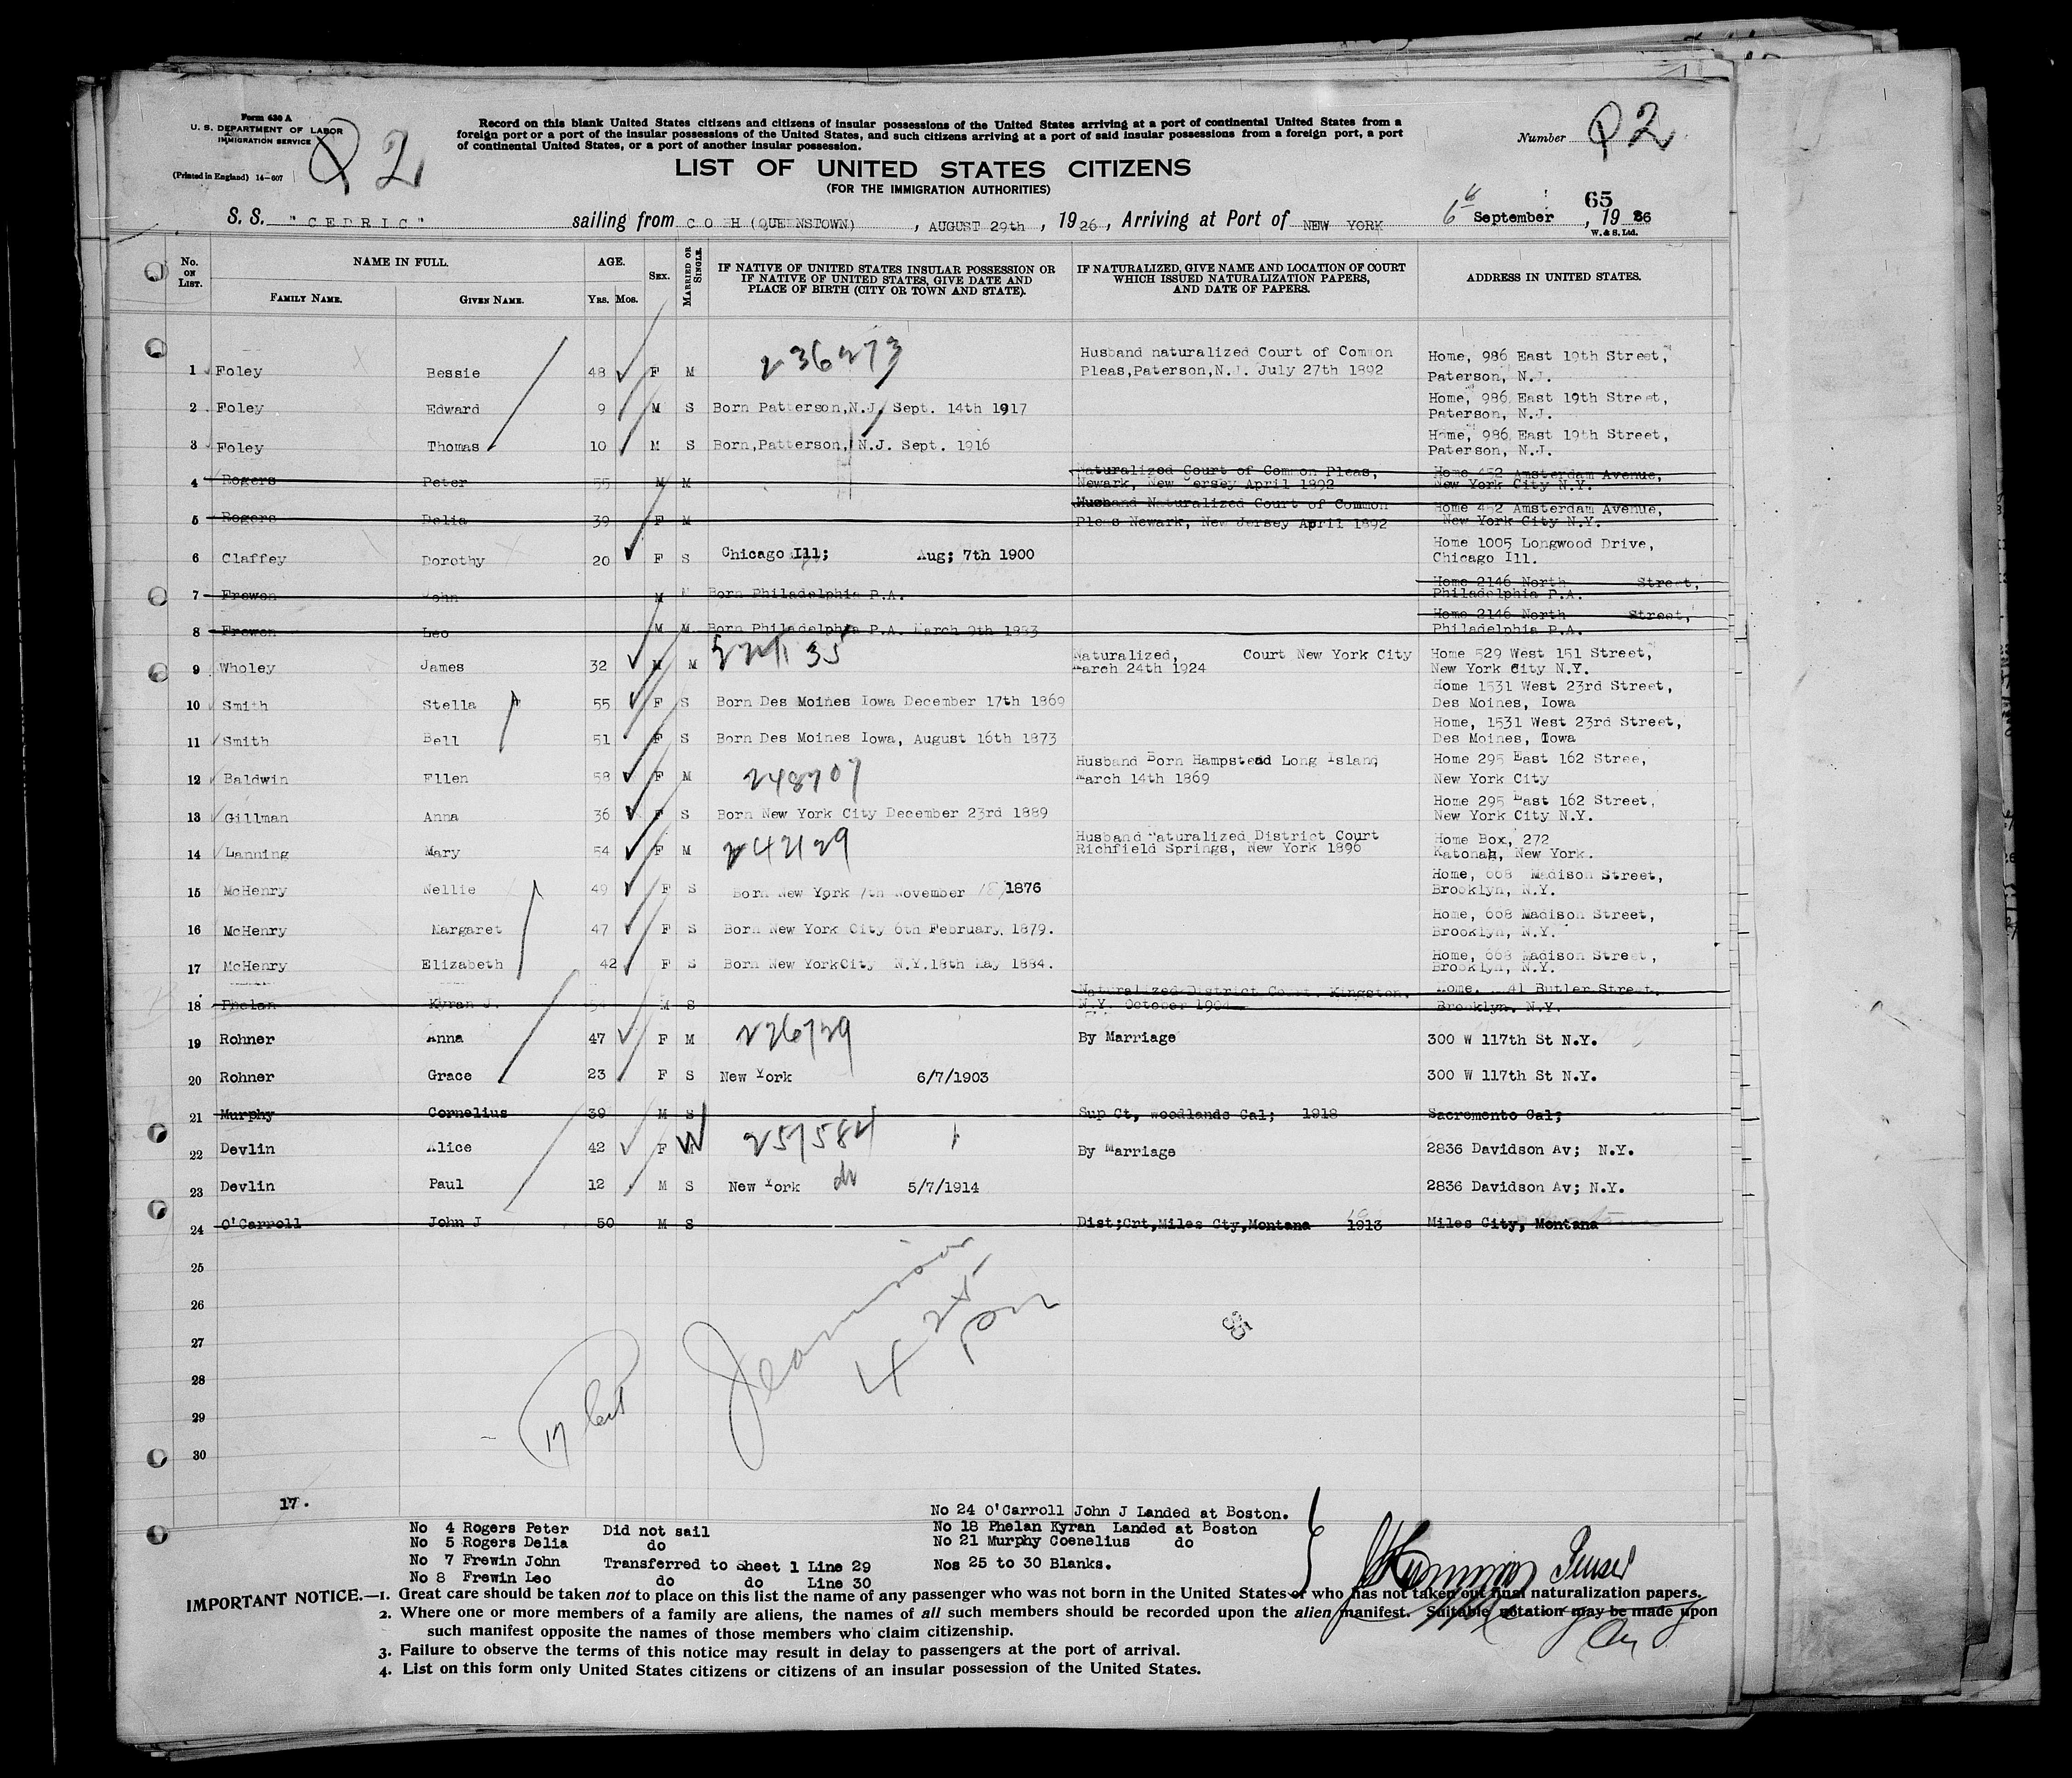 Form 630 A
U. S. DEPARTMENT OF LABOR
IMMIGRATION SERVICE
(Printed in England) 14-607
Q2
Record on this blank United States citizens and citizens of insular possessions of the United States arriving at a port of continental United States from a
foreign port or a port of the insular possessions of the United States, and such citizens arriving at a port of said insular possessions from a foreign port, a port
of continental United States, or a port of another insular possession.
Number Q2
LIST OF UNITED STATES CITIZENS
(FOR THE IMMIGRATION AUTHORITIES)
65
S. S. "CEDRIC" sailing from COBH (QUEENSTOWN), AUGUST 29th, 1926, Arriving at Port of NEW YORK 6th September, 1926
W. & S. Ltd.
No. ON LIST. NAME IN FULL. AGE. SEX. MARRIED OR SINGLE. IF NATIVE OF UNITED STATES INSULAR POSSESSION OR IF NATIVE OF UNITED STATES, GIVE DATE AND PLACE OF BIRTH (CITY OR TOWN AND STATE). IF NATURALIZED, GIVE NAME AND LOCATION OF COURT WHICH ISSUED NATURALIZATION PAPERS, AND DATE OF PAPERS. ADDRESS IN UNITED STATES.
FAMILY NAME. GIVEN NAME. YRS. MOS.
1 Foley Bessie 48 F M 236273 Husband naturalized Court of Common Pleas, Paterson, N.J. July 27th 1892 Home, 986 East 19th Street, Paterson, N.J.
2 Foley Edward 9 M S Born Patterson, N.J. Sept. 14th 1917 Home, 986 East 19th Street, Paterson, N.J.
3 Foley Thomas 10 M S Born, Patterson, N.J. Sept. 1916 Home, 986 East 19th Street, Paterson, N.J.
4 Rogers Peter 55 M M Naturalized Court of Common Pleas, Newark, New Jersey April 1892 Home 452 Amsterdam Avenue, New York City N.Y.
5 Rogers Delia 39 F M Husband Naturalized Court of Common Pleas Newark, New Jersey April 1892 Home 452 Amsterdam Avenue, New York City N.Y.
6 Claffey Dorothy 20 F S Chicago Ill; Aug; 7th 1900 Home 1005 Longwood Drive, Chicago Ill.
7 Frewen John M M Born Philadelphia P.A. Home 2146 North Street, Philadelphia P.A.
8 Frewen Leo M M Born Philadelphia P.A. March 9th 1883 Home 2146 North Street, Philadelphia P.A.
9 Wholey James 32 M M Naturalized, Court New York City March 24th 1924 Home 529 West 151 Street, New York City N.Y.
10 Smith Stella 55 F S Born Des Moines Iowa December 17th 1869 Home 1531 West 23rd Street, Des Moines, Iowa
11 Smith Bell 51 F S Born Des Moines Iowa, August 16th 1873 Home, 1531 West 23rd Street, Des Moines, Iowa
12 Baldwin Ellen 58 F M 248707 Husband Born Hampstead Long Island March 14th 1869 Home 295 East 162 Stree, New York City
13 Gillman Anna 36 F S Born New York City December 23rd 1889 Home 295 East 162 Street, New York City N.Y.
14 Lanning Mary 54 F M 242129 Husband Naturalized District Court Richfield Springs, New York 1896 Home Box, 272 Katonah, New York.
15 McHenry Nellie 49 F S Born New York 7th November 1876 Home, 668 Madison Street, Brooklyn, N.Y.
16 McHenry Margaret 47 F S Born New York City 6th February, 1879. Home, 668 Madison Street, Brooklyn, N.Y.
17 McHenry Elizabeth 42 F S Born New YorkCity N.Y.18th May 1884. Home, 668 Madison Street, Brooklyn, N.Y.
18 Phelan Kyran J. 54 M S Naturalized District Court, Kingston, N.Y. October 1904 Home, 41 Butler Street, Brooklyn, N.Y.
19 Rohner Anna 47 F M 226729 By Marriage 300 W 117th St N.Y.
20 Rohner Grace 23 F S New York 6/7/1903 300 W 117th St N.Y.
21 Murphy Cornelius 39 M S Sup Ct, woodlands Cal; 1918 Sacremento Cal;
22 Devlin Alice 42 F W 257584 By Marriage 2836 Davidson Av; N.Y.
23 Devlin Paul 12 M S New York do 5/7/1914 2836 Davidson Av; N.Y.
24 O'Carroll John J 50 M S Dist;Crt,Miles Cty,Montana 1913 Miles City, Montana
25
26
27
28
29
30
17.
No 4 Rogers Peter Did not sail
No 5 Rogers Delia do
No 7 Frewin John Transferred to Sheet 1 Line 29
No 8 Frewin Leo do do Line 30
No 24 O'Carroll John J Landed at Boston.
No 18 Phelan Kyran Landed at Boston
No 21 Murphy Coenelius do
Nos 25 to 30 Blanks.
IMPORTANT NOTICE.—1. Great care should be taken not to place on this list the name of any passenger who was not born in the United States or who has not taken out final naturalization papers.
2. Where one or more members of a family are aliens, the names of all such members should be recorded upon the alien manifest. Suitable notation may be made upon
such manifest opposite the names of those members who claim citizenship.
3. Failure to observe the terms of this notice may result in delay to passengers at the port of arrival.
4. List on this form only United States citizens or citizens of an insular possession of the United States.